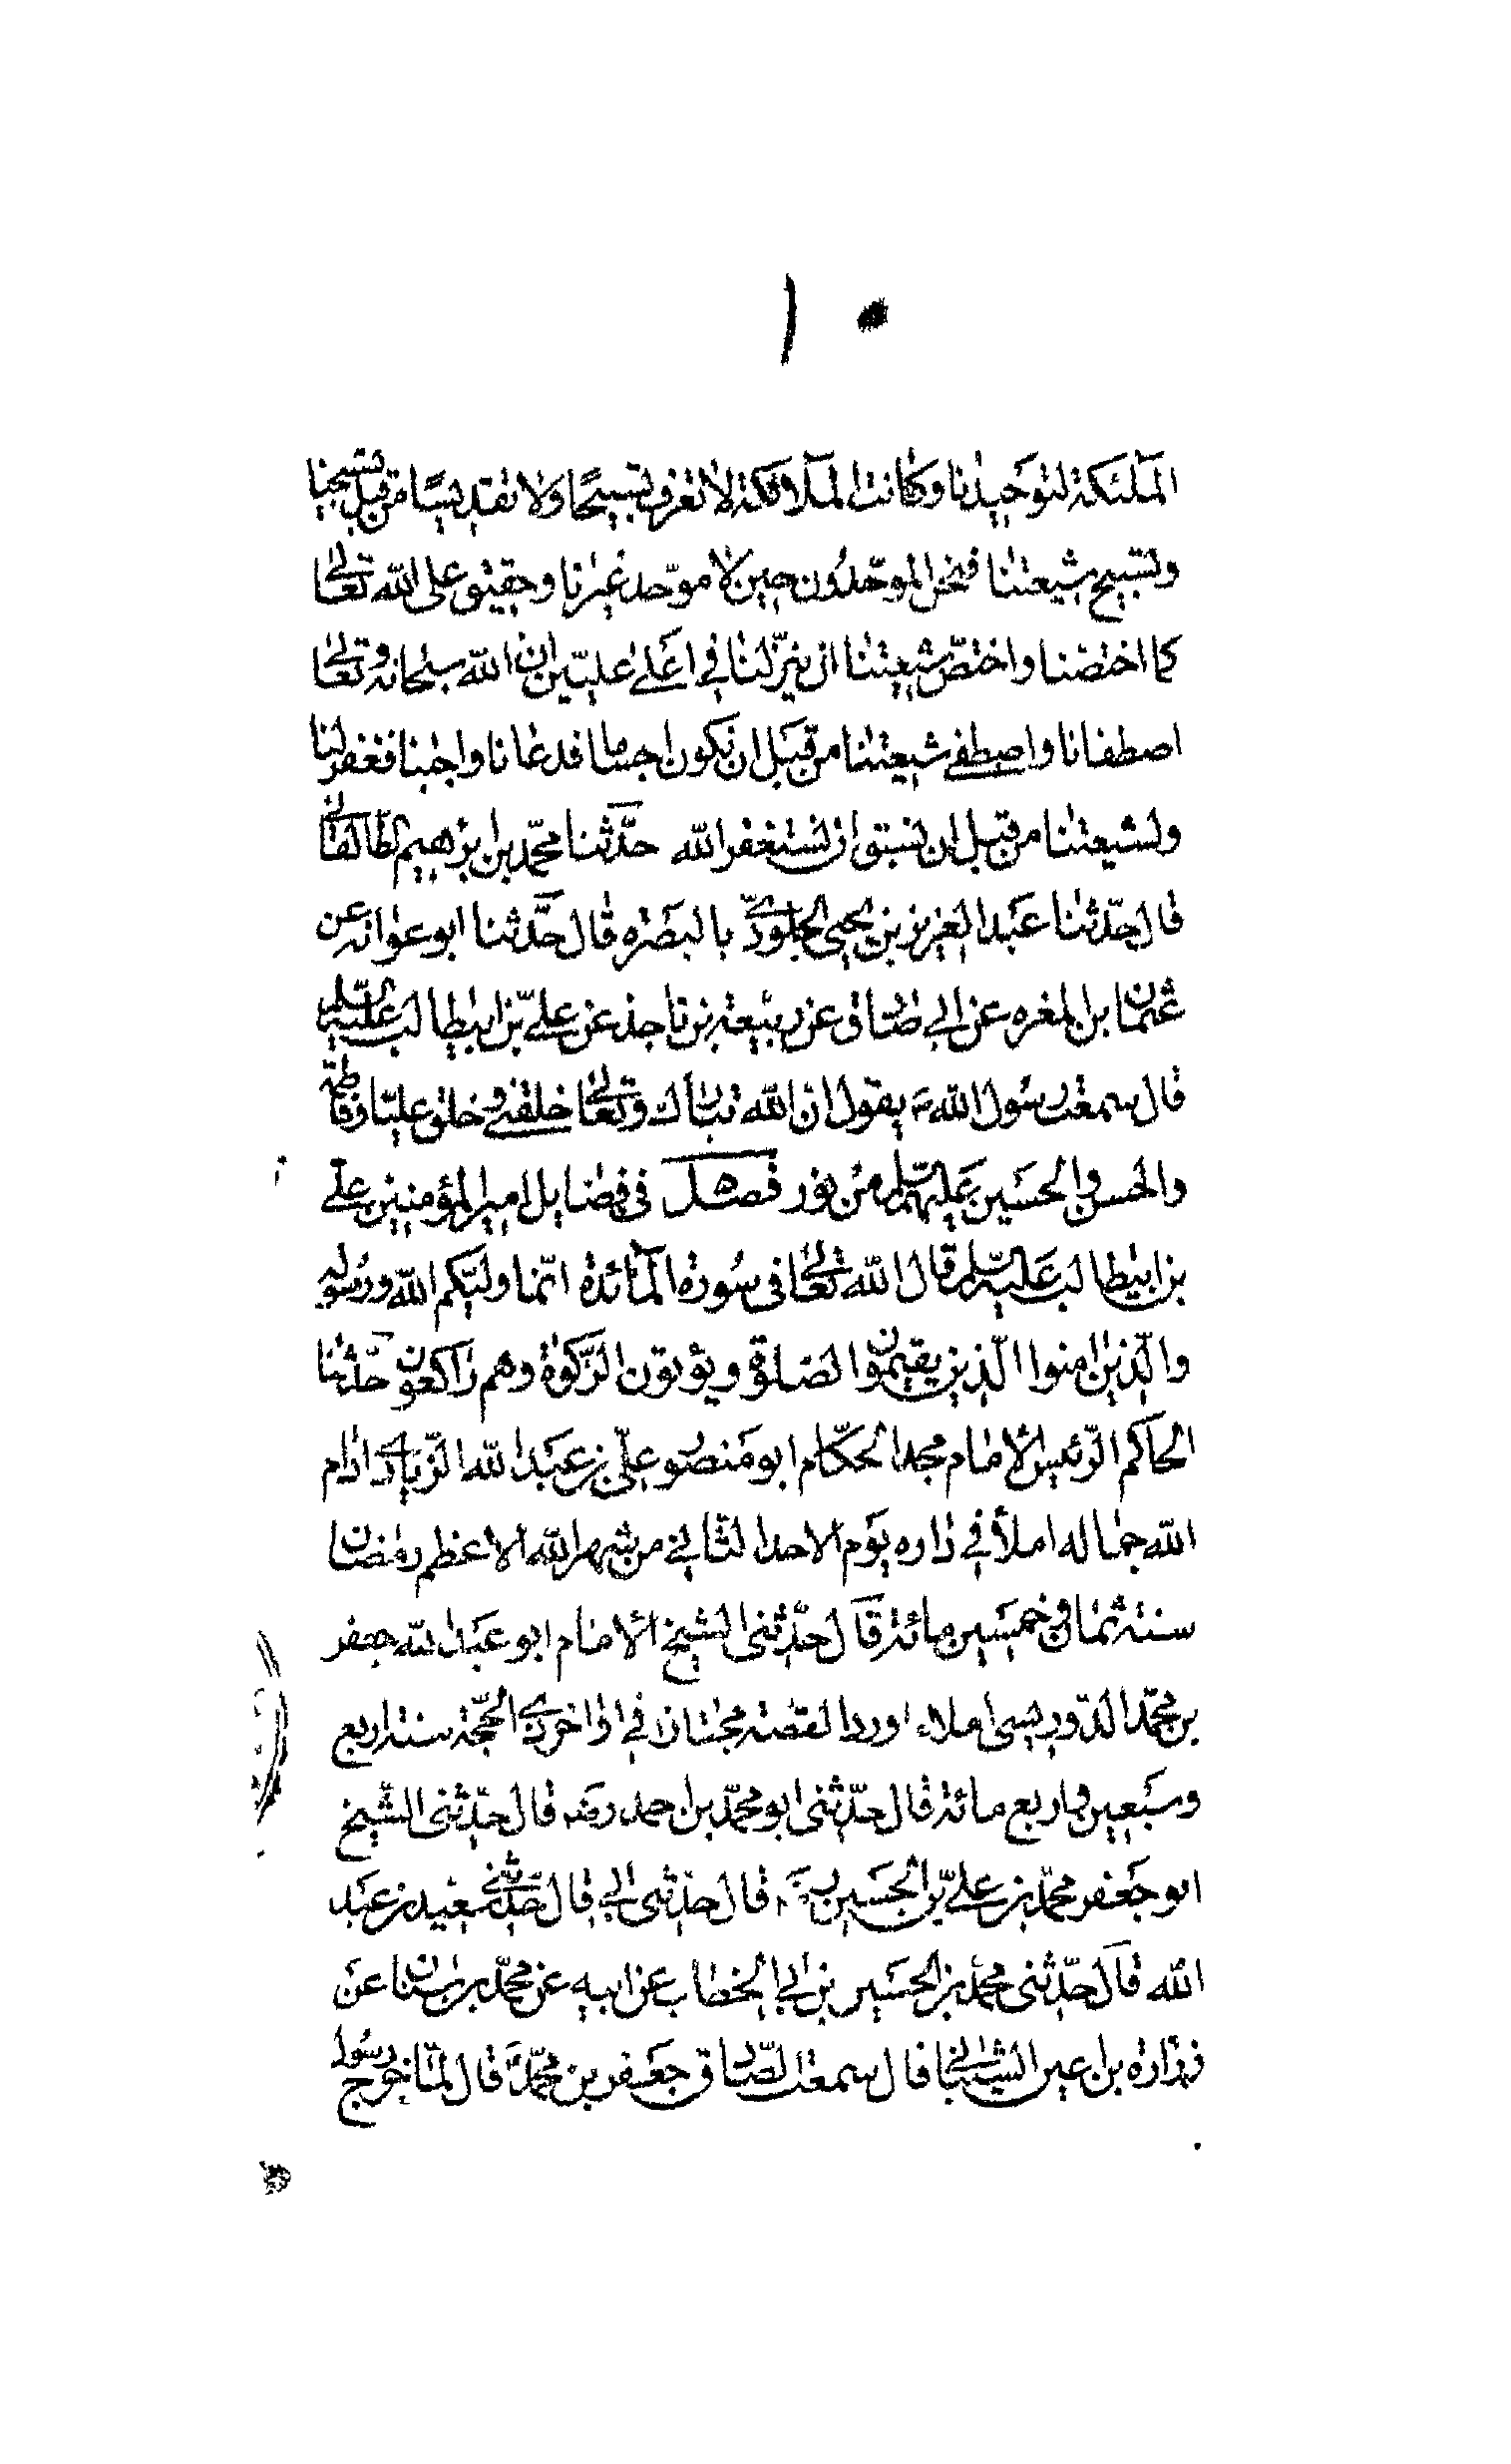 ١٠
الملئكة لتوحيدنا وكانت الملائكة لا تعرف تسبيحا ولا تقديسا من قبل تسبيحنا
وتسبيح شيعتنا فنحن الموحّدون حين لا موحّد غيرنا وحقيق على الله تعالى
كما اختصنا واختصّ شيعتنا ان ينزّلنا في اعلى عليّين ان الله سبحانه وتعالى
اصطفانا واصطفى شيعتنا من قبل ان نكون اجساما فدعانا واجبنا فغفر لنا
ولشيعتنا من قبل ان نسبق ان نستغفر الله حدّثنا محمّد بن ابرهيم الطالقاني
قال حدّثنا عبد العزيز بن يحيى الجلودي بالبصره قال حدّثنا ابو عوانه عن
عثمان بن المغره عن ابي صادق عن ربيعة بن ناجذ عن عليّ بن ابيطالب عليه السّلم
قال سمعت رسول الله ص يقول ان الله تبارك وتعالى خلقني وخلق عليّا وفاطمة
والحسن والحسين عليهم السّلم من نور فصل في فضايل امير المؤمنين علي
بن ابيطالب عليه السّلم قال الله تعالى في سورة المائدة انّما وليّكم الله ورسوله
والّذين امنوا الّذين يقيمون الصلوة ويؤتون الزّكوة وهم راكعون حدّثنا
الحاكم الرّئيس الامام مجد الحكّام ابو منصور عليّ بن عبد الله الزّيادي ادام
الله جماله املأ في داره يوم الاحد الثّاني من شهر الله الاعظم رمضان
سنة ثمان وخمسين مائة قال حدّثني الشيخ الامام ابو عبد الله جعفر
بن محمّد الدّوريستي املاء اورد القصة مجتازا في اواخر ذي الحجّة سنة اربع
وسبعين واربع مائة قال حدّثني ابو محمّد بن احمد رضه قال حدّثني الشّيخ
ابو جعفر محمّد بن عليّ بن الحسين ره قال حدّثني ابي قال حدّثني سعيد بن عبد
الله قال حدّثني محمّد بن الحسين بن ابي الخطاب عن ابيه عن محمّد بن سنان عن
زرارة بن اعين الشيباني قال سمعت الصّادق جعفر بن محمّد قال لمّا خرج رسول